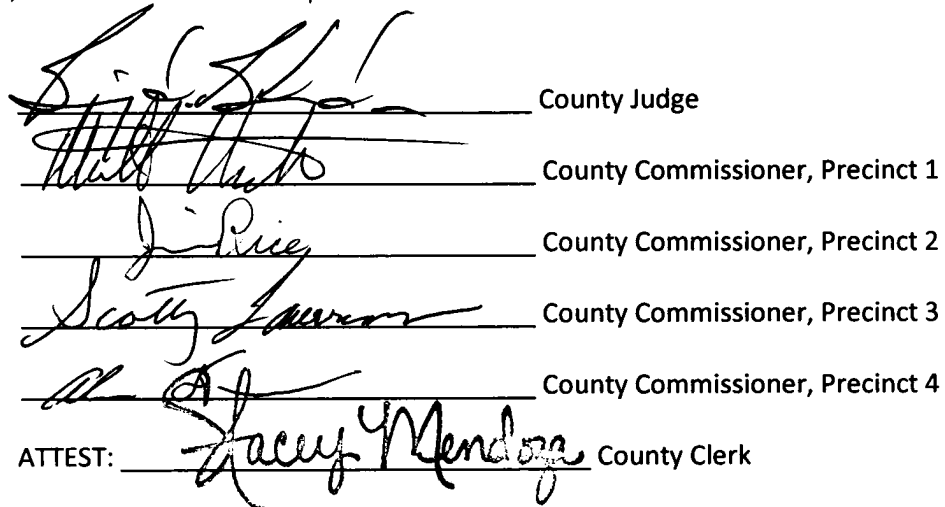 County Judge
County Commissioner, Precinct 1
Jim Rice County Commissioner, Precinct 2
Scotty County Commissioner, Precinct 3
County Commissioner, Precinct 4
ATTEST: Stacey Mendoza County Clerk